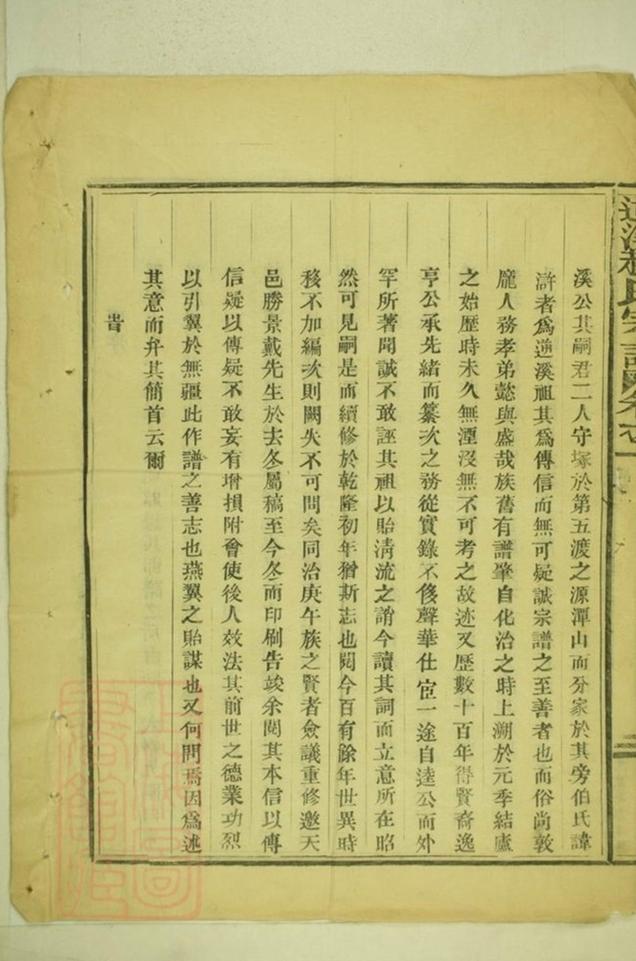 溪公其嗣君二人守塚於第五渡之源潭山而分家於其旁伯氏諱
滸者為逆溪祖其為傳信而無可疑誠宗譜之至善者也而俗尚敦
龐人務孝弟懿與盛哉族舊有譜肇自化治之時上溯於元季結廬
之始歷時未久無湮沒無不可考之故迹又歷數十百年得賢裔逸
亨公承先緒而纂次之務從實錄不侈聲華仕宦一途自逵公而外
罕所著聞誠不敢誣其祖以貽清流之誚今讀其詞而立意所在昭
然可見嗣是而續修於乾隆初年猶斯志也閱今百有餘年世異時
移不加編次則闕失不可問矣同治庚午族之賢者僉議重修邀天
邑勝景戴先生於去冬屬稿至今冬而印刷告竣余閱其本信以傳
信疑以傳疑不敢妄有增損附會使後人效法其前世之德業功烈
以引翼於無疆此作譜之善志也燕翼之貽謀也又何問焉因為述
其意而弁其簡首云爾
旹